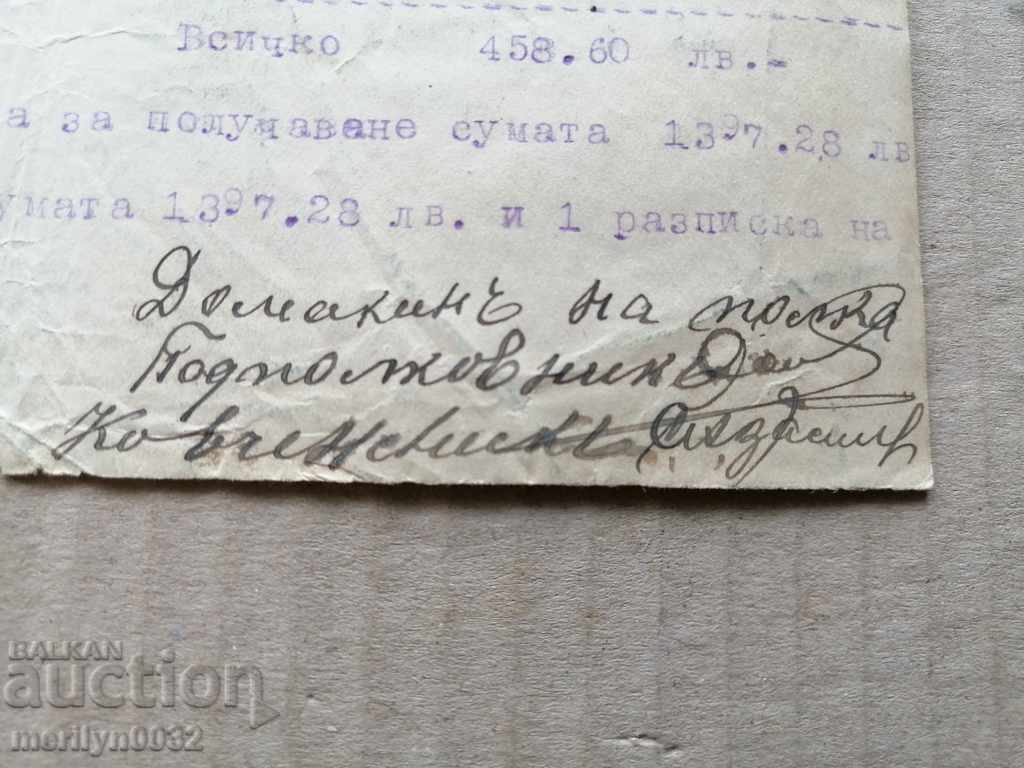 Всичко 458.60 лв.-
а за получаване сумата 1397.28 лв
умата 1397.28 лв. и 1 разписка на
Домакинъ на полка
Подполковникъ
Ковчежникъ
BALKAN
auction
merilyn0032